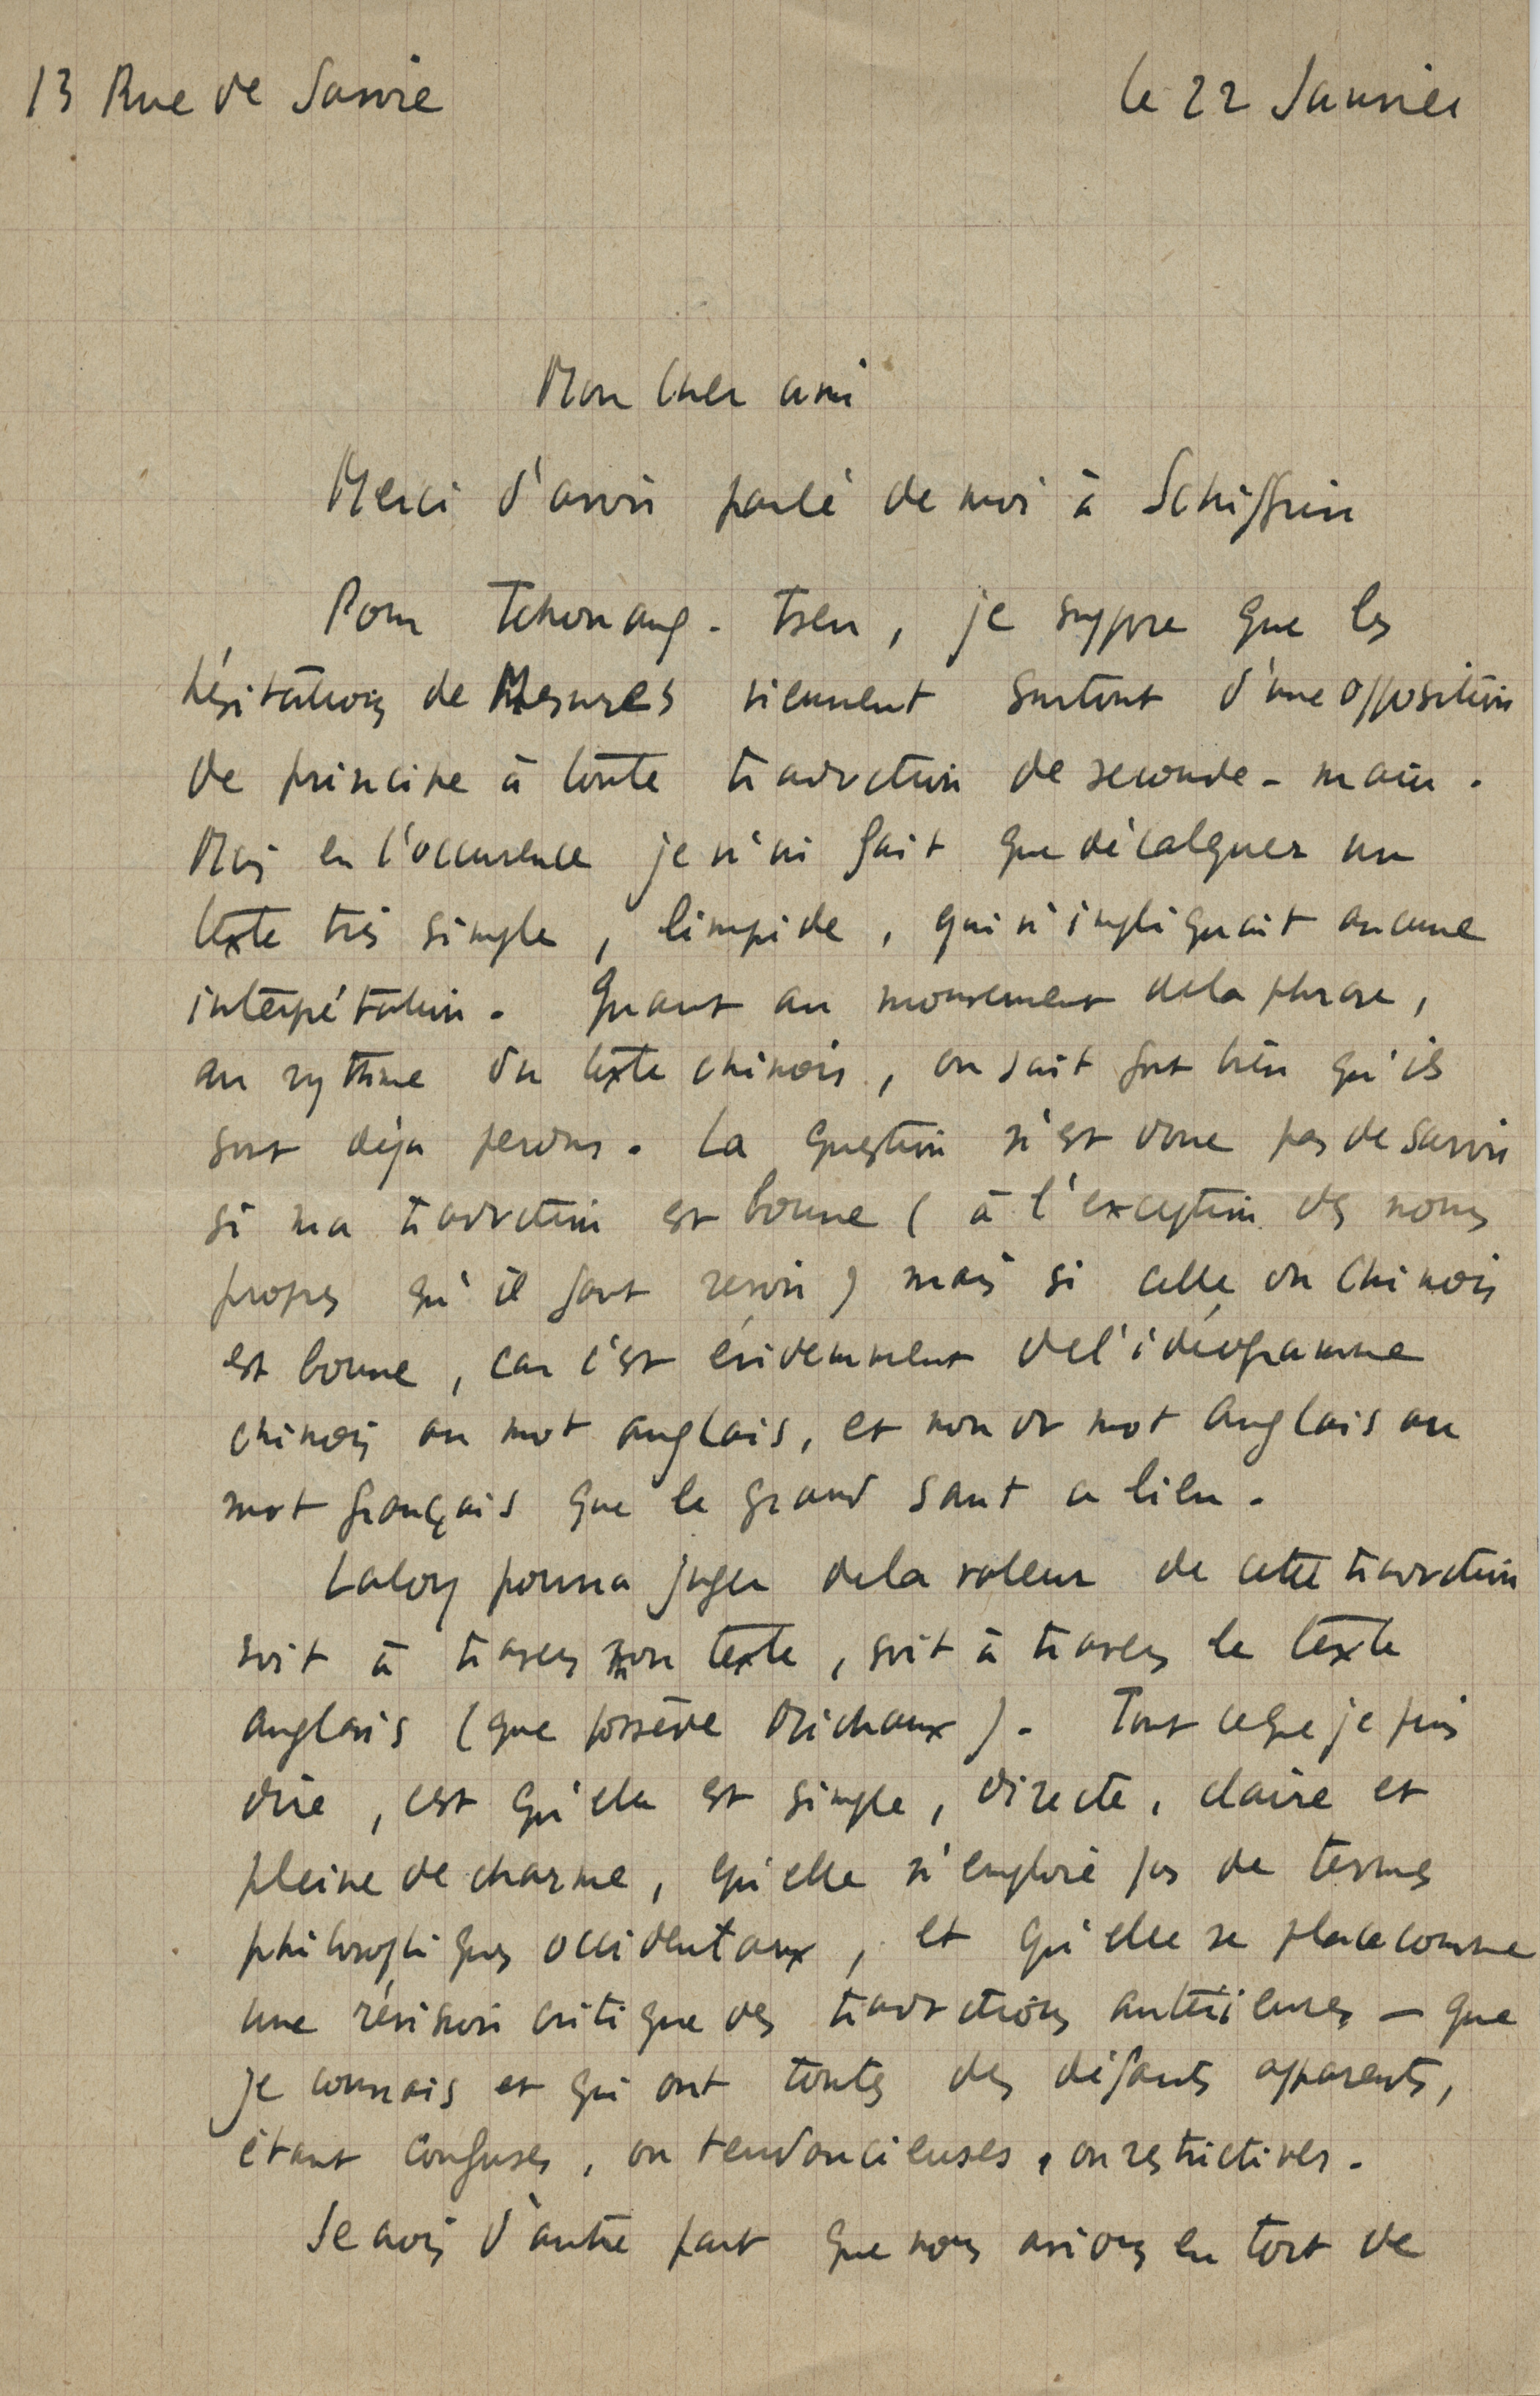 13 Rue de Savoie
le 22 Janvier
Mon cher ami
Merci d'avoir parlé de moi à Schiffrin
Pour Tchouang-tseu, je suppose que les
hésitations de Mesures viennent surtout d'une opposition
de principe à toute traduction de seconde-main.
Mais en l'occurence je n'ai fait que décalquer un
texte très simple, limpide, qui n'impliquait aucune
interpétation. Quant au mouvement de la phrase,
au rythme du texte chinois, on sait fort bien qu'ils
sont déja perdus. La question n'est donc pas de savoir
si ma traduction est bonne (à l'exception des noms
propres qu'il faut revoir) mais si celle du Chinois
est bonne, car c'est évidemment de l'idéogramme
chinois au mot anglais, et non du mot anglais au
mot français que le grand saut a lieu.
Laloy pourra juger de la valeur de cette traduction
soit à travers mon texte, soit à travers le texte
anglais (que possède Michaux). Tout ce que je puis
dire, c'est qu'elle est simple, directe, claire et
pleine de charme, qu'elle n'emploie pas de termes
philosophiques occidentaux, et qu'elle se place comme
une révision critique des traductions antérieures — que
je connais et qui ont toutes des défauts apparents,
étant confuses, ou tendancieuses, ou restrictives.
Je crois d'autre part que nous avions eu tort de